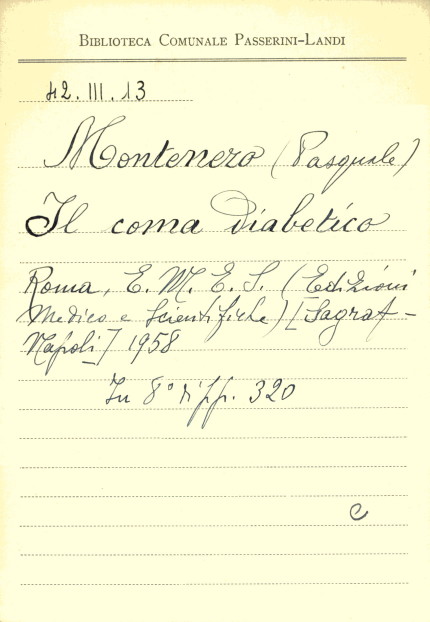 BIBLIOTECA COMUNALE PASSERINI-LANDI
42.III.13
Montenero (Pasquale)
Il coma diabetico
Roma, E. M. E. S. (Edizioni
Mediche e Scientifiche) [Sagraf -
Napoli] 1958
In 8° di pp. 320
C